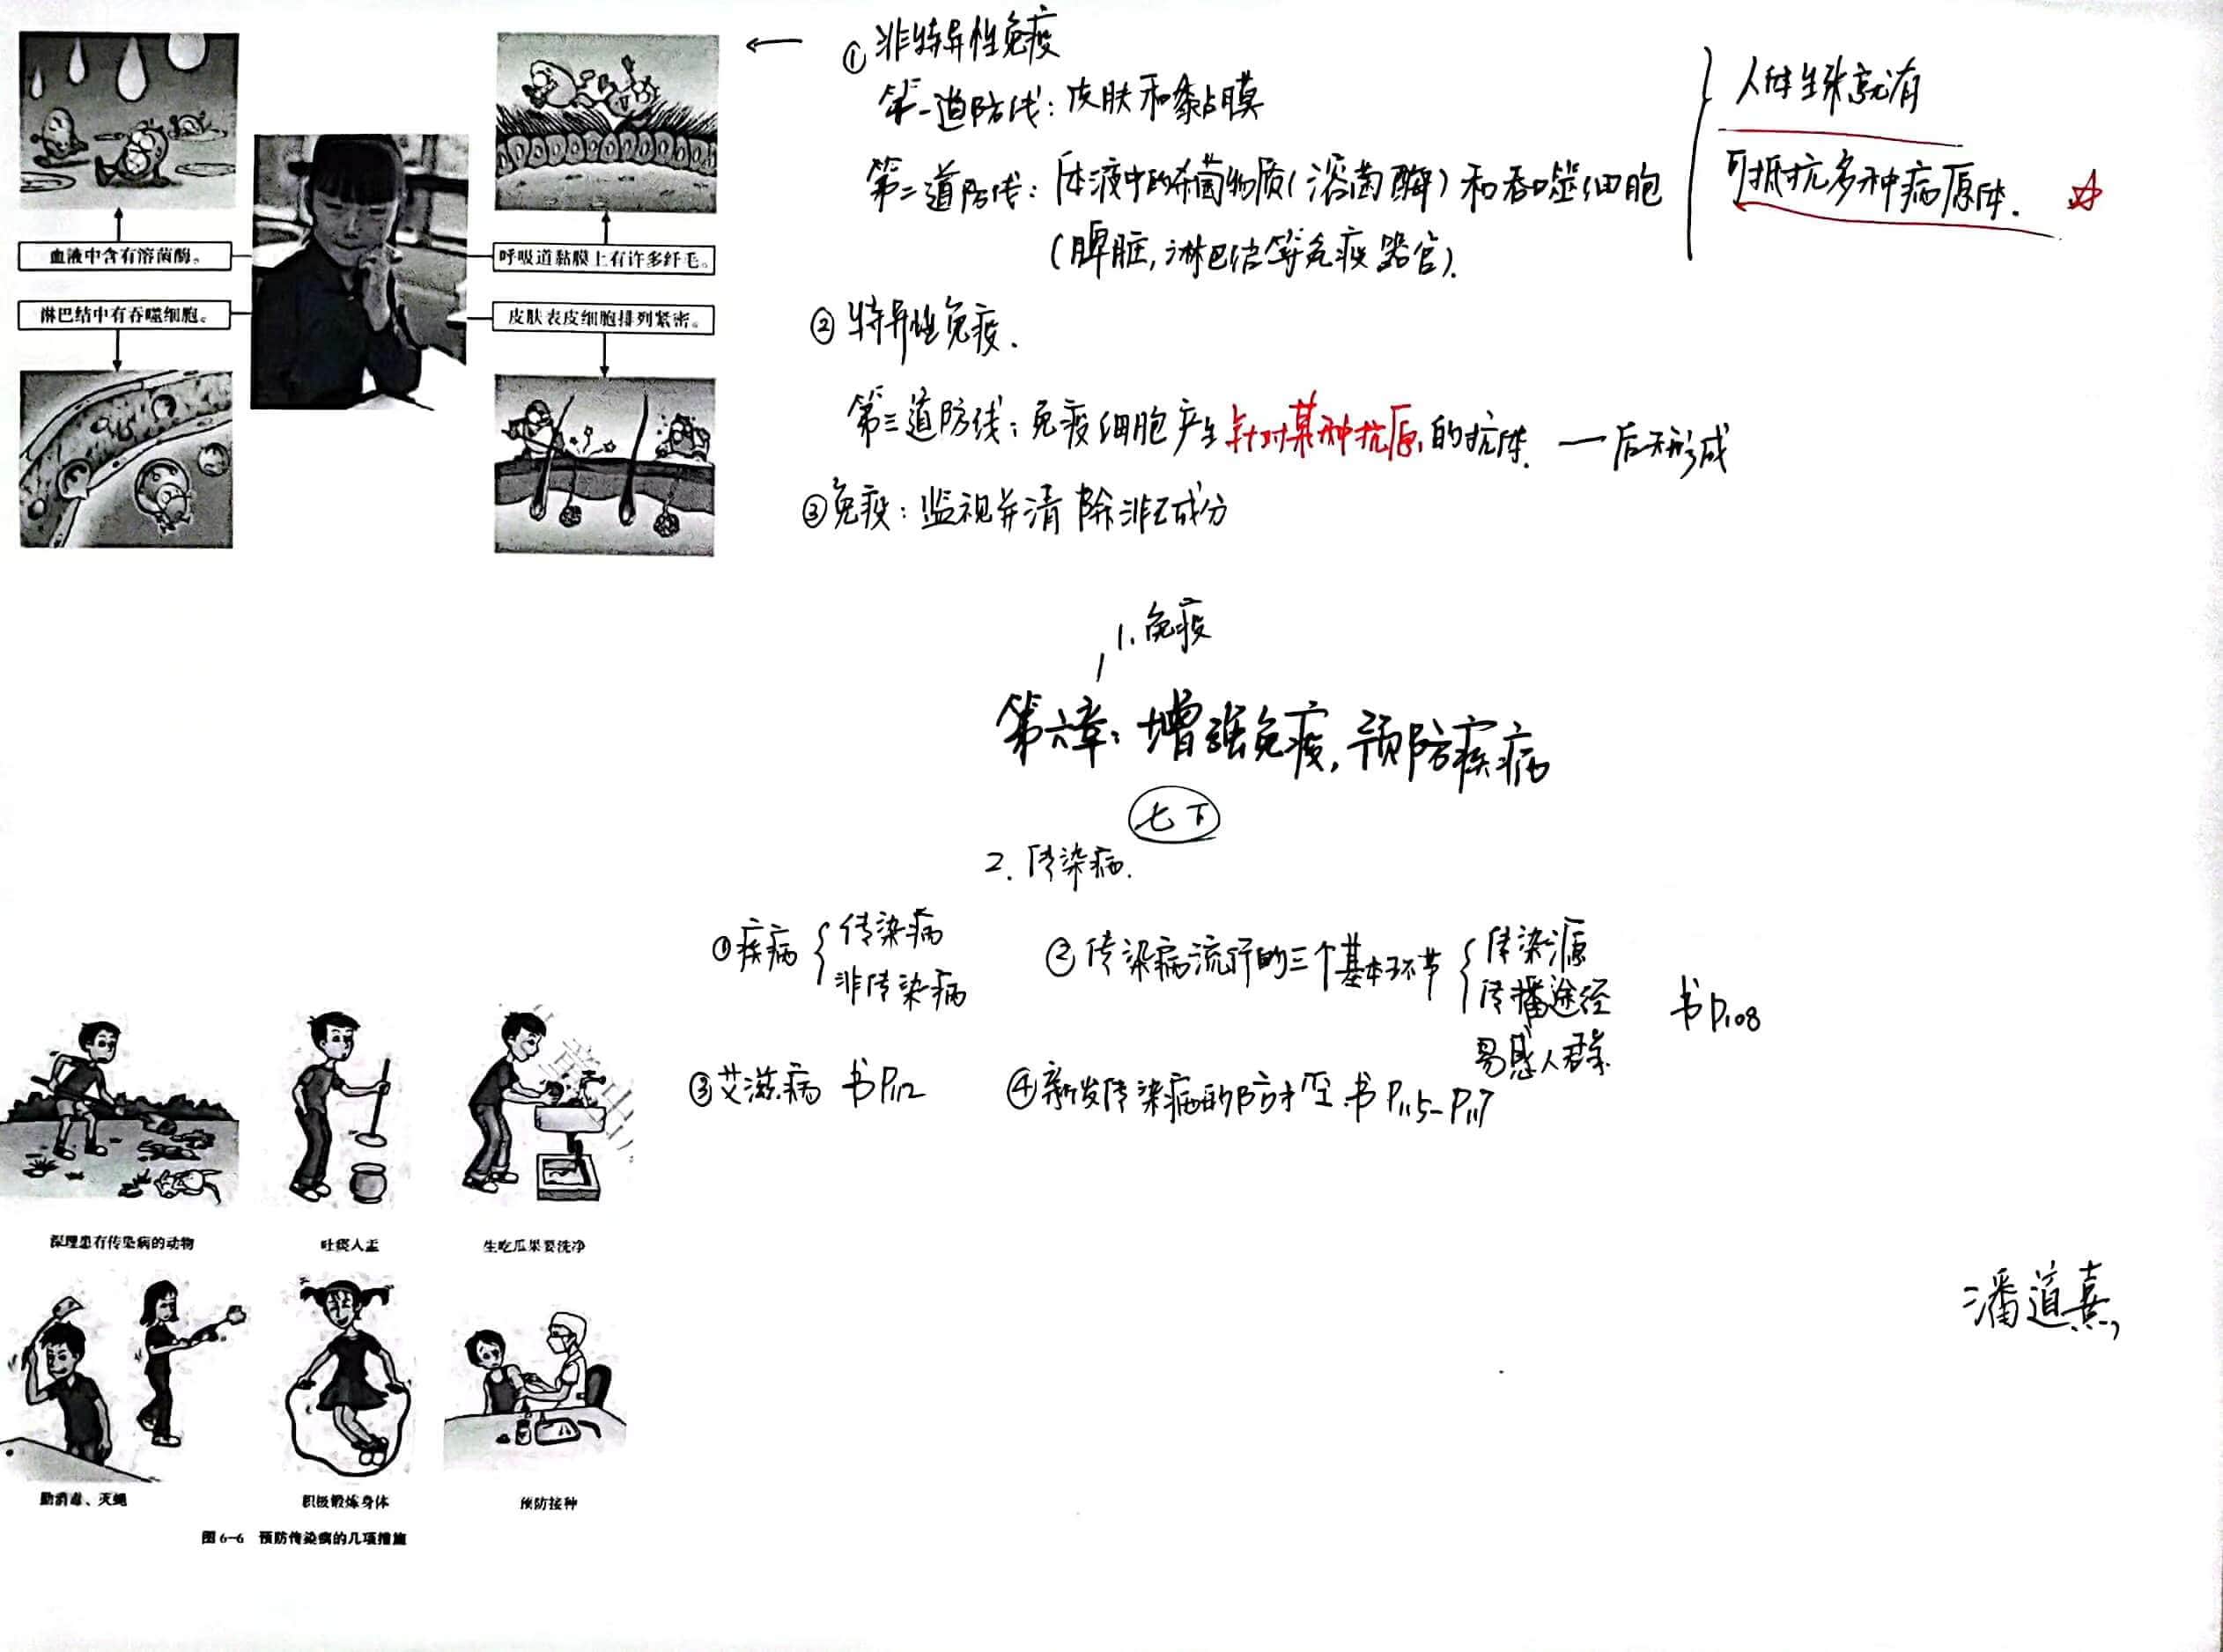 ①非特异性免疫
第一道防线：皮肤和黏膜
第二道防线：体液中的杀菌物质（溶菌酶）和吞噬细胞
（脾脏，淋巴结等免疫器官）.
人体生来就有
可抵抗多种病原体.
血液中含有溶菌酶。
呼吸道黏膜上有许多纤毛。
淋巴结中有吞噬细胞。
皮肤表皮细胞排列紧密。
②特异性免疫.
第三道防线：免疫细胞产生针对某种抗原的抗体. —后天形成
③免疫：监视并清除非己成分
1.免疫
第六章：增强免疫，预防疾病
七下
2.传染病.
①疾病
传染病
非传染病
②传染病流行的三个基本环节
传染源
传播途径
易感人群
书P108
③艾滋病 书P112
④新发传染病的防控.书P115-P117
深埋患有传染病的动物
吐痰入盂
生吃瓜果要洗净
勤消毒、灭蝇
积极锻炼身体
预防接种
图6-6 预防传染病的几项措施
潘道熹